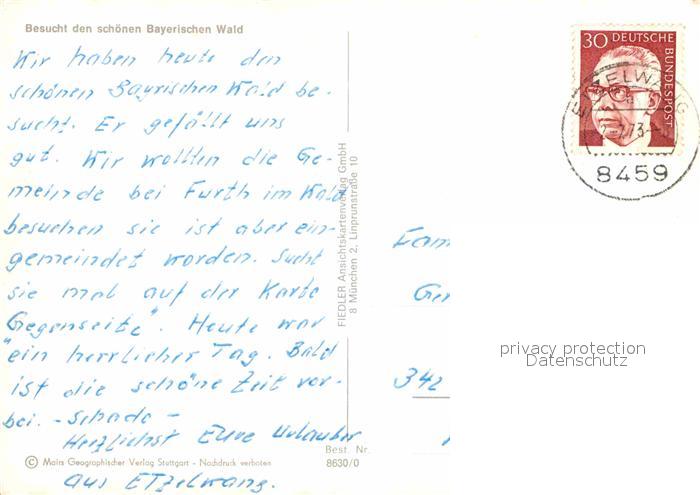 Besucht den schönen Bayerischen Wald
Wir haben heute den
schönen Bayrischen Wald be-
sucht. Er gefällt uns
gut. Wir wollten die Ge-
meinde bei Furth im Wald
besuchen sie ist aber ein-
gemeindet worden. Sucht
sie mal auf der Karte
"Gegenseite". Heute war
ein herrlicher Tag. Bald
ist die schöne Zeit vor-
bei. - Schade -
Herzlichst Eure Urlauber
aus Etzelwang.
© Mairs Geographischer Verlag Stuttgart - Nachdruck verboten
Best. Nr.
8630/0
FIEDLER Ansichtskartenverlag GmbH
8 München 2, Linprunstraße 10
30 DEUTSCHE
BUNDESPOST
ETZELWANG
73
8459
Fam
Ger
342
privacy protection
Datenschutz